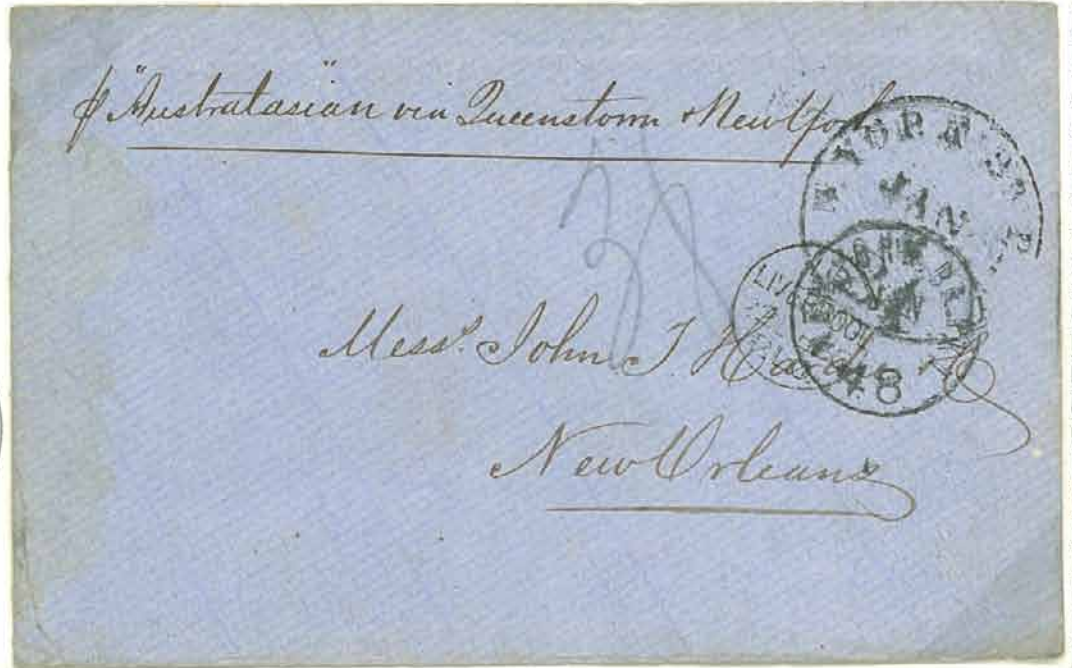 p "Australasian" via Queenstown & New York
38
N. YORK BR. PKT
JAN
LIVERPOOL
48
Mess. John T. Hardie & Co
New Orleans